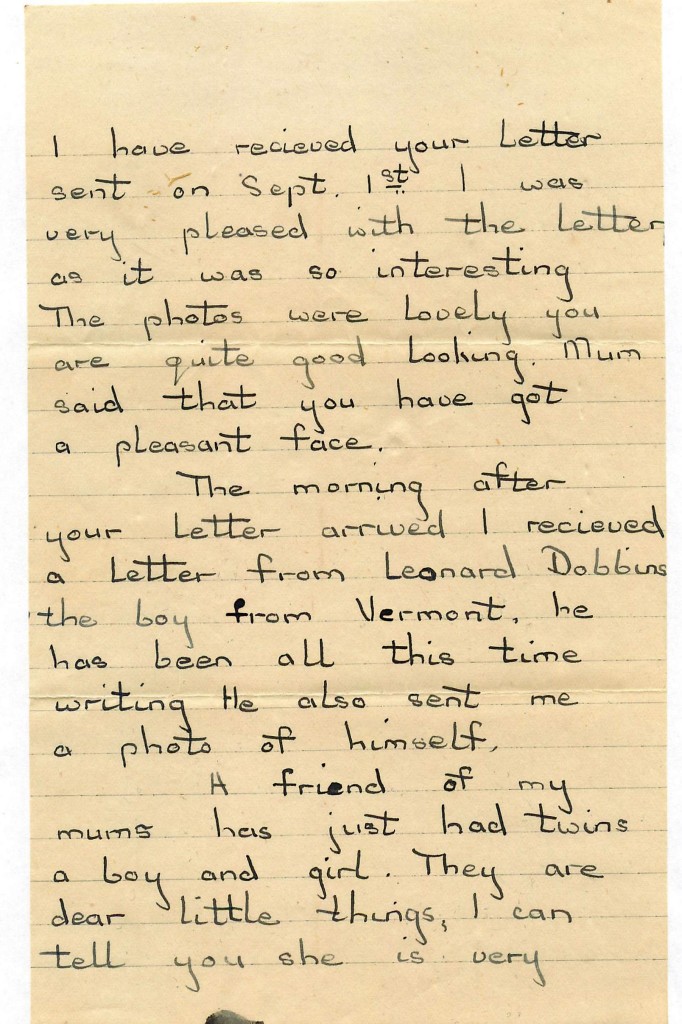 I have recieved your Letter
sent on Sept. 1st I was
very pleased with the Letter
as it was so interesting
The photos were Lovely you
are quite good Looking. Mum
said that you have got
a pleasant face.
The morning after
your Letter arrived I recieved
a Letter from Leonard Dobbins
the boy from Vermont, he
has been all this time
writing He also sent me
a photo of himself,
A friend of my
mums has just had twins
a boy and girl. They are
dear little things, I can
tell you she is very